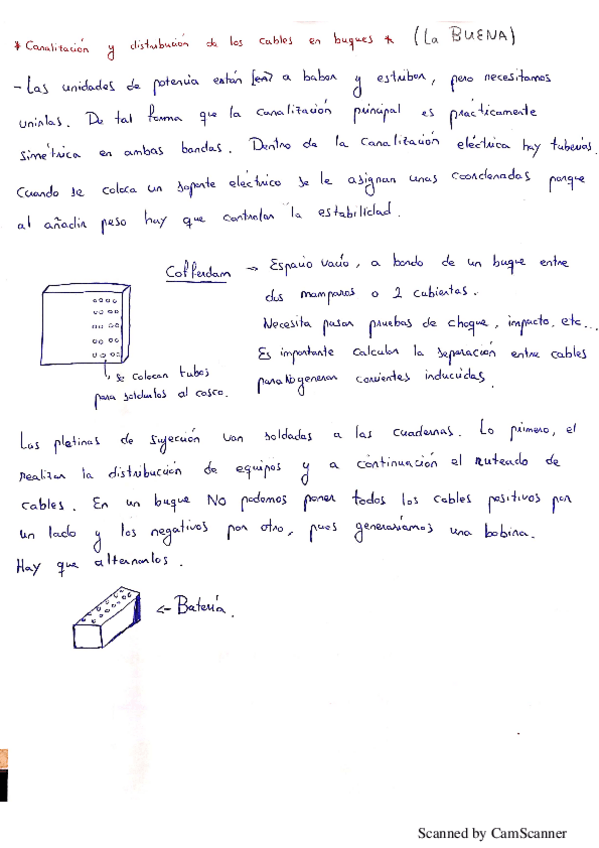 * Canalización y distribución de los cables en buques * (La BUENA)
- Las unidades de potencia están [en] a babor y estribor, pero necesitamos
unirlas. De tal forma que la canalización principal es prácticamente
simétrica en ambas bandas. Dentro de la canalización eléctrica hay tuberías.
Cuando se coloca un soporte eléctrico se le asignan unas coordenadas porque
al añadir peso hay que controlar la estabilidad.
Cofferdam → Espacio vacío, a bordo de un buque entre
dos mamparos o 2 cubiertas.
Necesita pasar pruebas de choque, impacto, etc...
Es importante calcular la separación entre cables
para No generar corrientes inducidas.
se colocan tubos
para soldarlos al casco.
Las pletinas de sujección van soldadas a las cuadernas. Lo primero, el
realizar la distribución de equipos y a continuación el ruteado de
cables. En un buque NO podemos poner todos los cables positivos por
un lado y los negativos por otro, pues generaríamos una bobina.
Hay que alternarlos.
← Batería.
Scanned by CamScanner